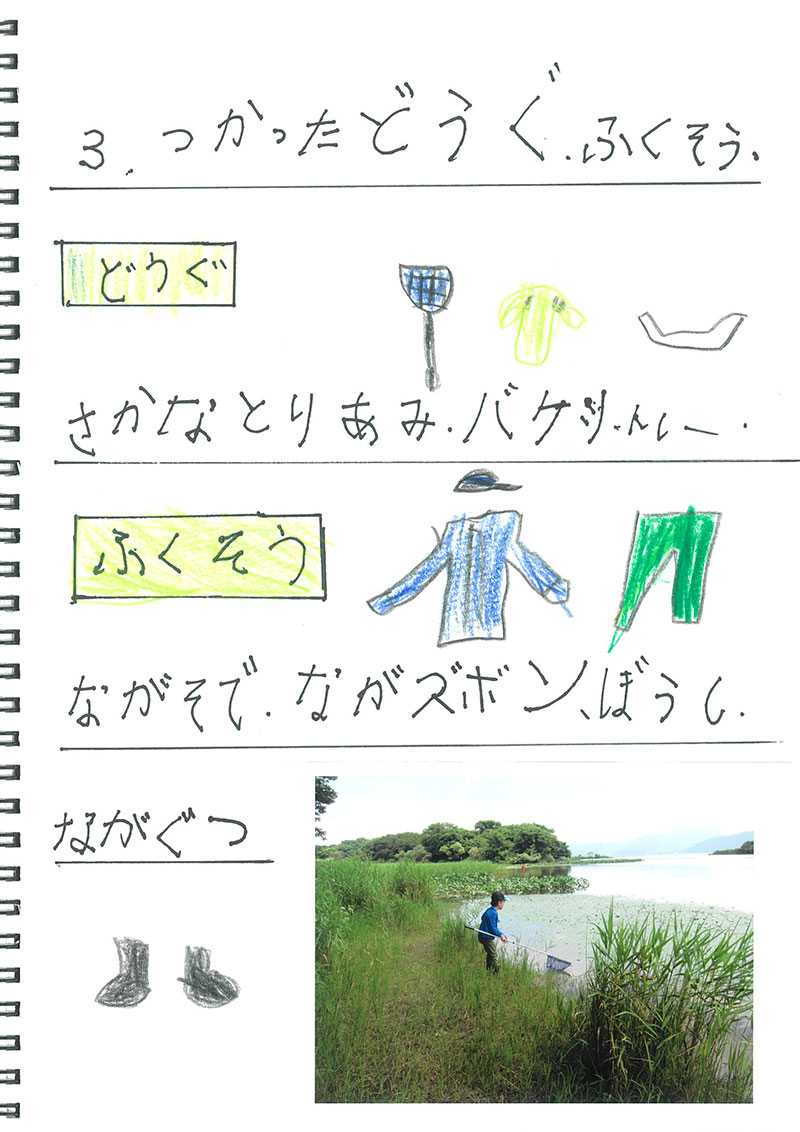 3.つかったどうぐ.ふくそう、
どうぐ
さかなとりあみ.バケツ
ふくそう
ながそで.ながズボン、ぼうし.
ながぐつ